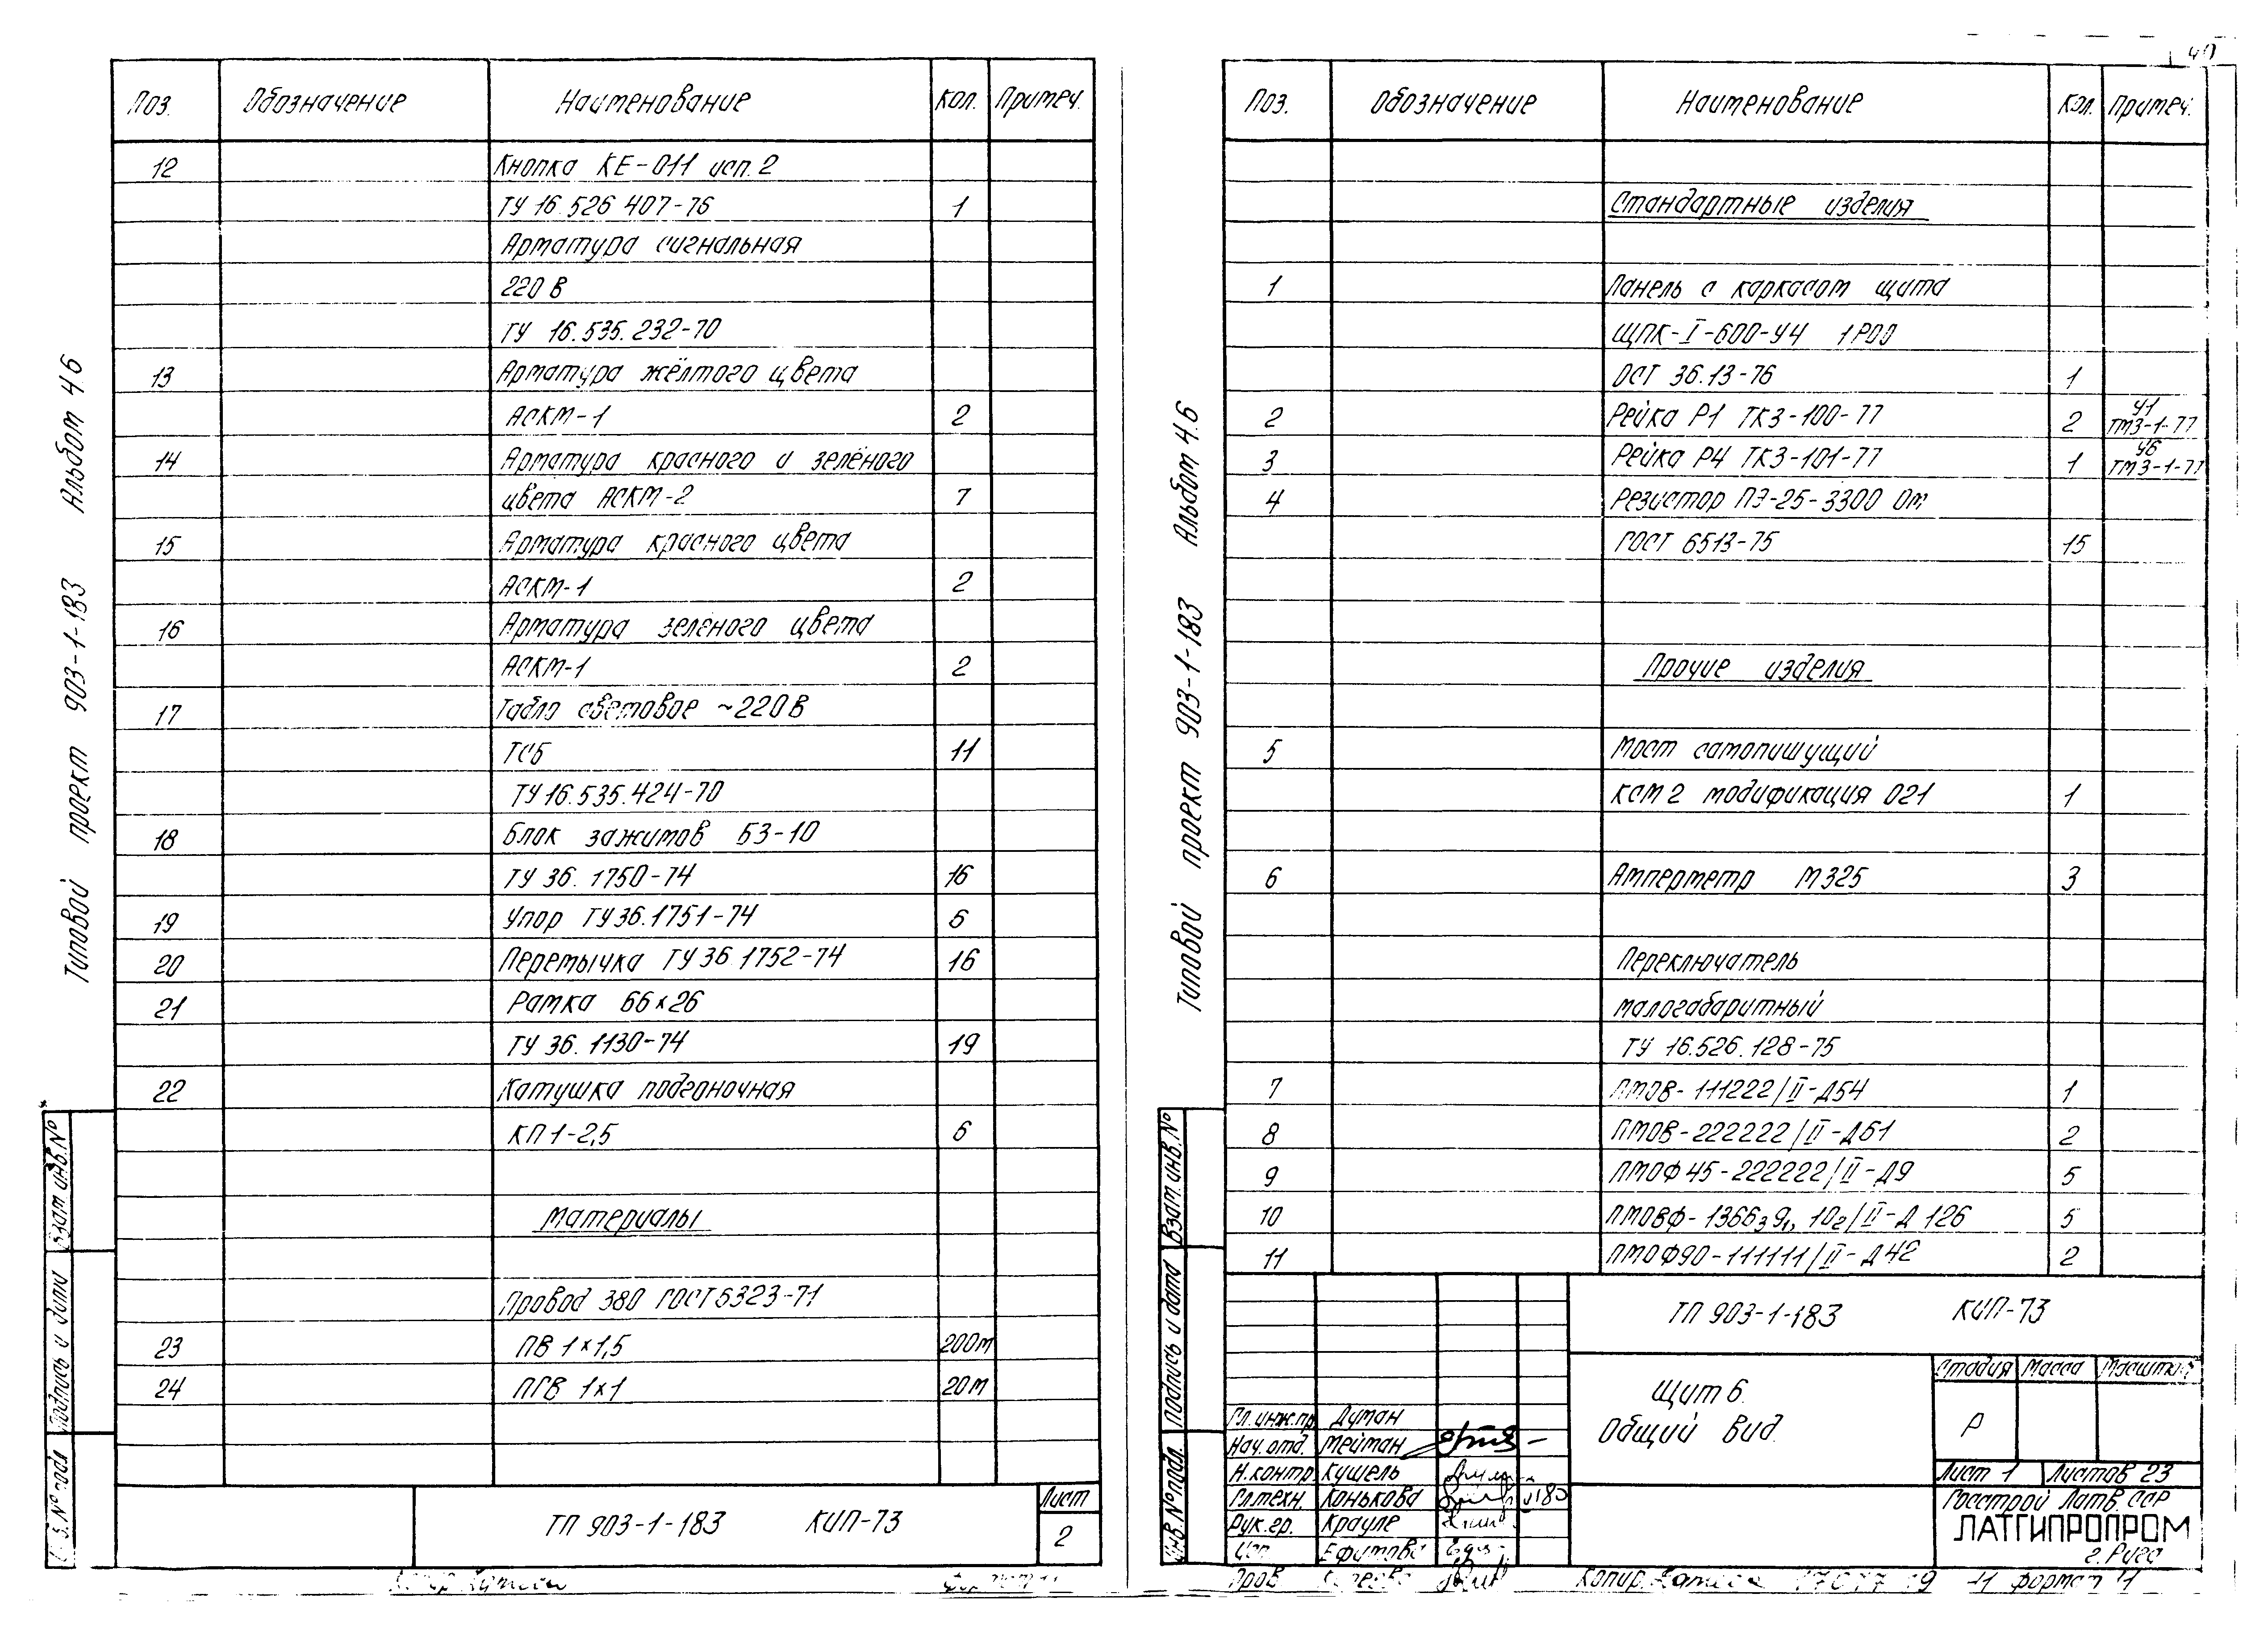 Поз. Обозначение Наименование Кол. Примеч.
12 Кнопка КЕ-011 исп. 2
ТУ 16.526 407-76 1
Арматура сигнальная
220 В
ТУ 16.535.232-70
13 Арматура жёлтого цвета
АСКМ-1 2
14 Арматура красного и зелёного
цвета АСКМ-2 7
15 Арматура красного цвета
АСКМ-1 2
16 Арматура зелёного цвета
АСКМ-1 2
17 Табло световое ~220В
ТСБ 11
ТУ 16.535.424-70
18 Блок зажимов БЗ-10
ТУ 36. 1750-74 16
19 Упор ТУ 36.1751-74 6
20 Перемычка ТУ 36.1752-74 16
21 Рамка 66×26
ТУ 36. 1130-74 19
22 Катушка подгоночная
КП 1-2,5 6
Материалы
Провод 380 ГОСТ 6323-71
23 ПВ 1×1,5 200м
24 ПГВ 1×1 20м
ТП 903-1-183 КИП-73
Лист
2
Типовой проект 903-1-183 Альбом 4.6
Взам. инв. №
Подпись и дата
№ подл
40
Поз. Обозначение Наименование Кол. Примеч.
Стандартные изделия
1 Панель с каркасом щита
ЩПК-I-600-У4 1Р00
ОСТ 36.13-76 1
2 Рейка Р1 ТК3-100-77 2 У1 ТМ3-1-77
3 Рейка Р4 ТК3-101-77 1 У6 ТМ3-1-77
4 Резистор ПЭ-25-3300 Ом
ГОСТ 6513-75 15
Прочие изделия
5 Мост самопишущий
КСМ2 модификация 021 1
6 Амперметр М325 3
Переключатель
малогабаритный
ТУ 16.526.128-75
7 ПМОВ-111222/II-Д54 1
8 ПМОВ-222222/II-Д61 2
9 ПМОФ45-222222/II-Д9 5
10 ПМОВФ-1366₃9₁, 10₂/II-Д 126 5
11 ПМОФ90-111111/II-Д42 2
Типовой проект 903-1-183 Альбом 4.6
Взам. инв. №
Подпись и дата
Инв. № подл.
ТП 903-1-183 КИП-73
Щит 6.
Общий вид.
Стадия Масса Масштаб
Р
Лист 1 Листов 23
Госстрой Латв. ССР
ЛАТГИПРОПРОМ
г. Рига
Гл. инж. пр Думан
Нач. отд. Мейман
Н. контр. Кушель
Гл. техн. Конькова
Рук. гр. Крауле
Исп Ефимова
Пров
Копир. формат 11